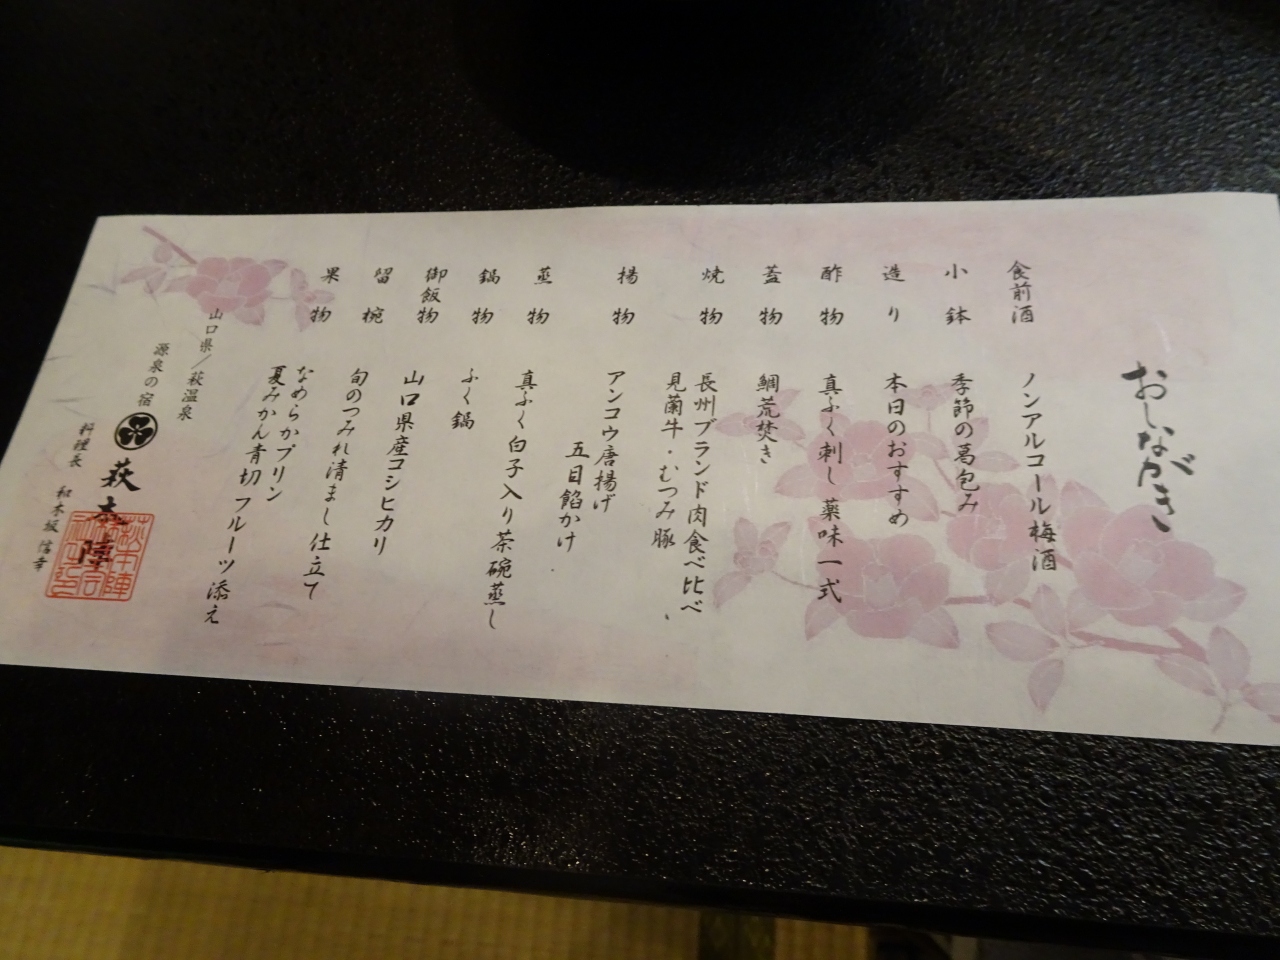 おしながき
食前酒 ノンアルコール梅酒
小鉢 季節の葛包み
造り 本日のおすすめ
酢物 真ふく刺し 薬味一式
蓋物 鯛荒焚き
焼物 長州ブランド肉食べ比べ
見蘭牛・むつみ豚
揚物 アンコウ唐揚げ
五目餡かけ
蒸物 真ふく白子入り茶碗蒸し
鍋物 ふく鍋
御飯物 山口県産コシヒカリ
留椀 旬のつみれ清まし仕立て
果物 なめらかプリン
夏みかん青切 フルーツ添え
山口県/萩温泉
源泉の宿 萩本陣
料理長 和木坂 信幸